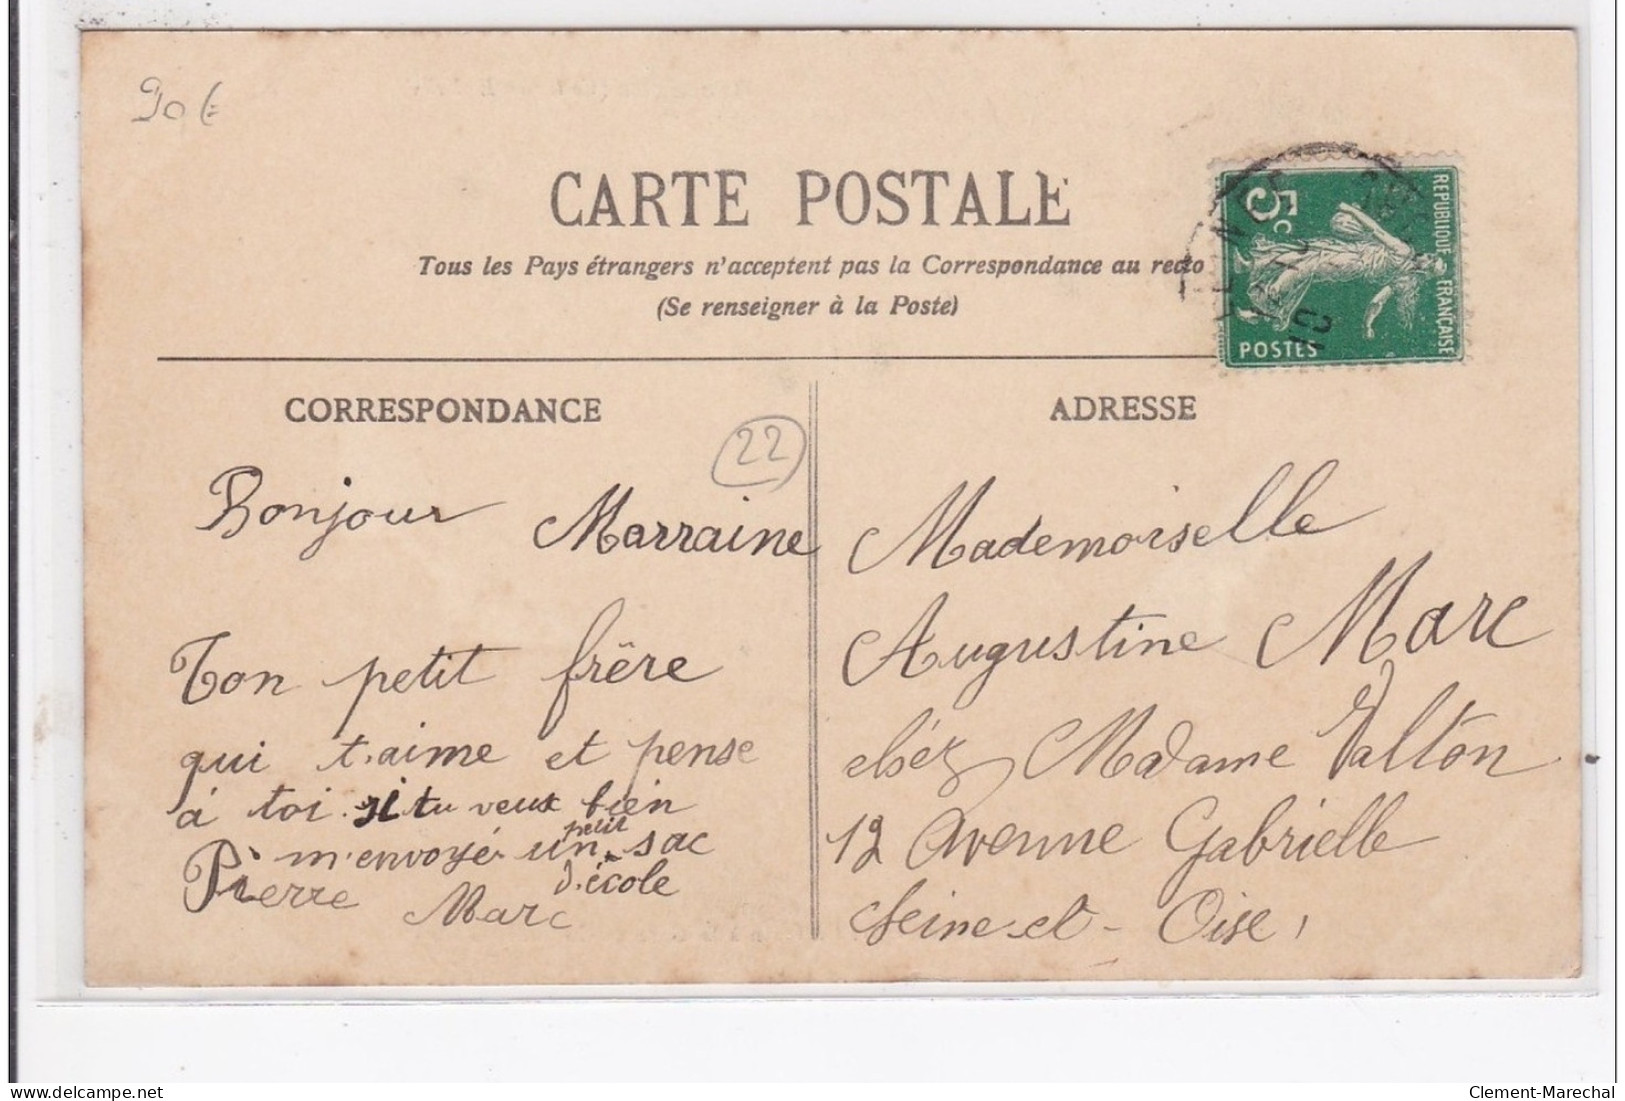 90 €
CARTE POSTALE
Tous les Pays étrangers n'acceptent pas la Correspondance au recto
(Se renseigner à la Poste)
REPUBLIQUE FRANÇAISE
5c
POSTES
CORRESPONDANCE
22
Bonjour Marraine
Ton petit frêre
qui t.aime et pense
à toi. si tu veux bien
m'envoyé un petit sac
d.école
Pierre Marc
ADRESSE
Mademoiselle
Augustine Marc
chéz Madame Valton
12 Avenue Gabrielle
Seine-et-Oise,
Clement-Marechal